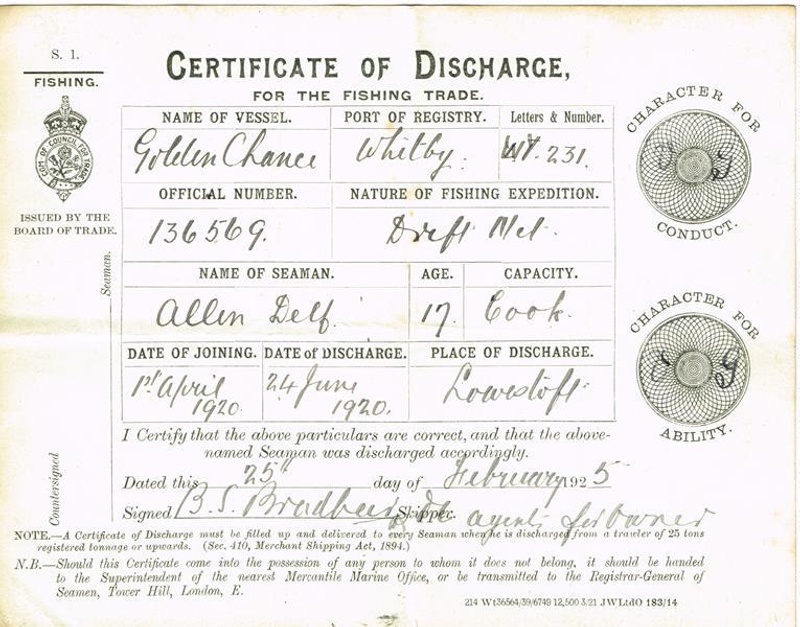 S. 1.
FISHING.
COM. OF COUNCIL FOR TRADE
ISSUED BY THE
BOARD OF TRADE.
CERTIFICATE OF DISCHARGE,
FOR THE FISHING TRADE.
NAME OF VESSEL. PORT OF REGISTRY. Letters & Number.
Golden Chance Whitby. WY. 231.
OFFICIAL NUMBER. NATURE OF FISHING EXPEDITION.
136569. Drift Net.
NAME OF SEAMAN. AGE. CAPACITY.
Allen Delf. 17. Cook.
DATE OF JOINING. DATE of DISCHARGE. PLACE OF DISCHARGE.
1st April 24 June Lowestoft.
1920. 1920.
I Certify that the above particulars are correct, and that the above-
named Seaman was discharged accordingly.
Dated this 25th day of February 1925
Signed B. S. Skipper. agents for Owner
Seaman.
Countersigned
CHARACTER FOR
G
CONDUCT.
CHARACTER FOR
G
ABILITY.
NOTE.—A Certificate of Discharge must be filled up and delivered to every Seaman when he is discharged from a trawler of 25 tons
registered tonnage or upwards. (Sec. 410, Merchant Shipping Act, 1894.)
N.B.—Should this Certificate come into the possession of any person to whom it does not belong, it should be handed
to the Superintendent of the nearest Mercantile Marine Office, or be transmitted to the Registrar-General of
Seamen, Tower Hill, London, E.
214 Wt36564/39/6749 12,500 3/21 JWLtdO 183/14